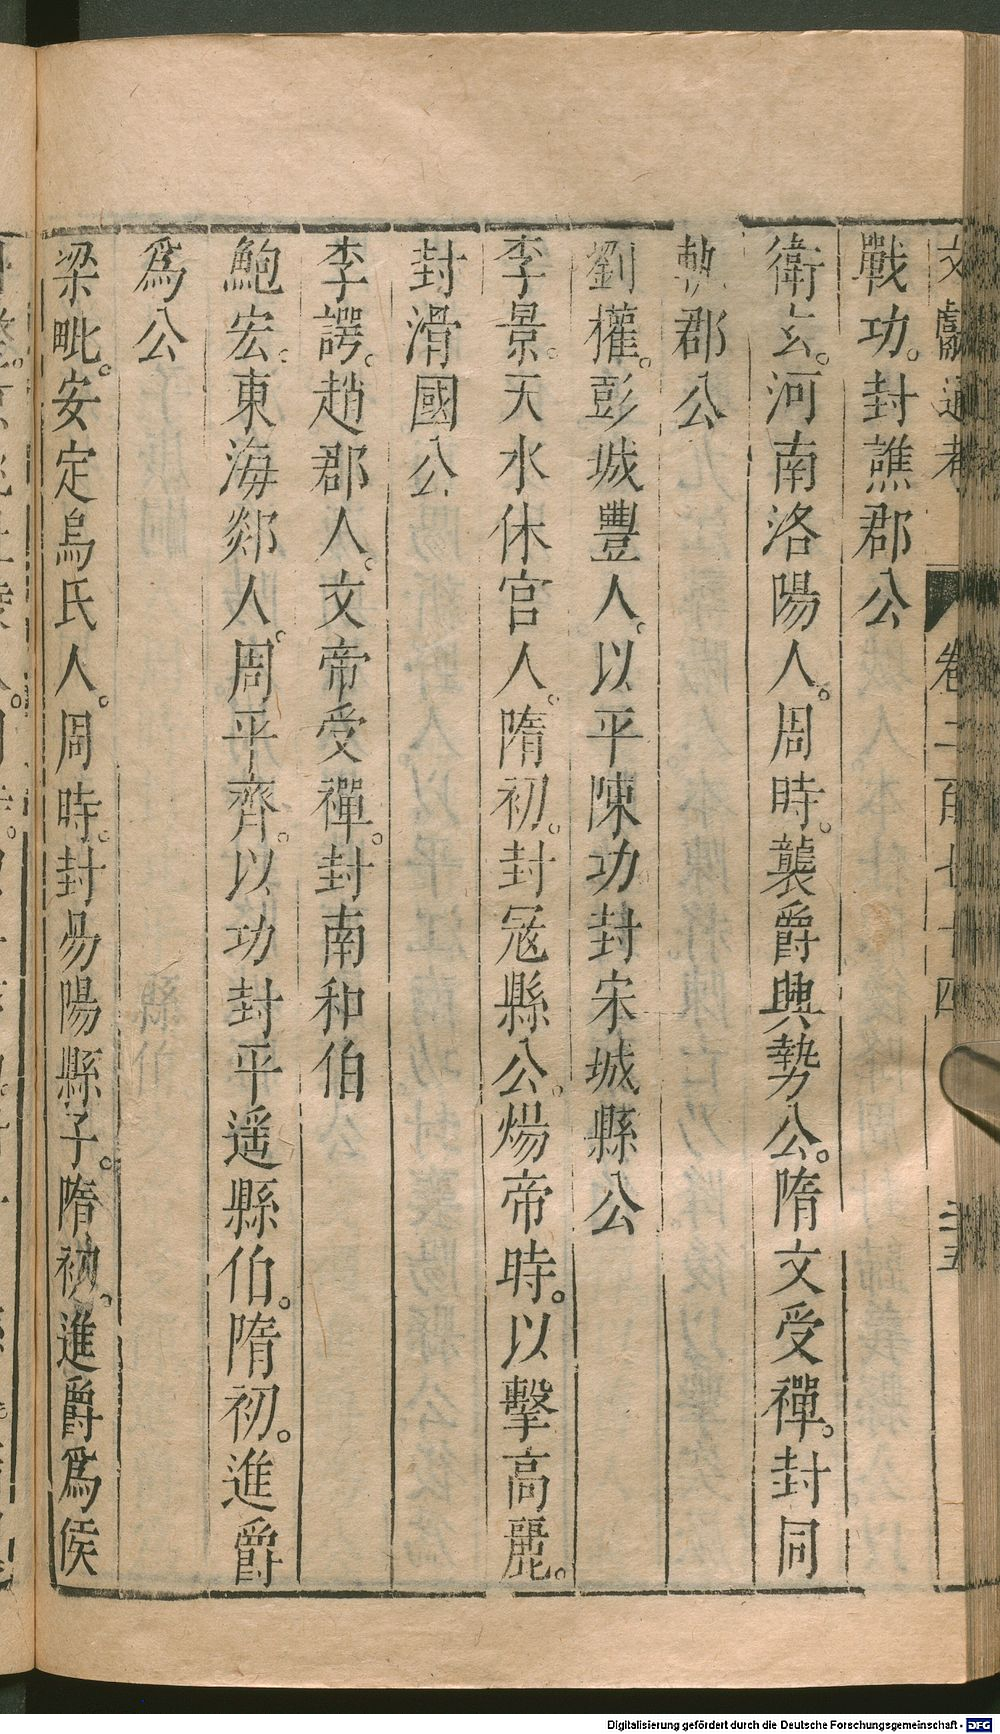 文獻通考 卷二百七十四 三五
戰功。封譙郡公
衛玄。河南洛陽人。周時。襲爵興勢公。隋文受禪。封同
軌郡公
劉權。彭城豐人。以平陳功封宋城縣公
李景。天水休官人。隋初。封寇縣公。煬帝時。以擊高麗。
封滑國公
李諤。趙郡人。文帝受禪。封南和伯
鮑宏。東海郯人。周平齊。以功封平遥縣伯。隋初。進爵
爲公
梁毗。安定烏氏人。周時。封易陽縣子。隋初。進爵爲侯
Digitalisierung gefördert durch die Deutsche Forschungsgemeinschaft - DFG